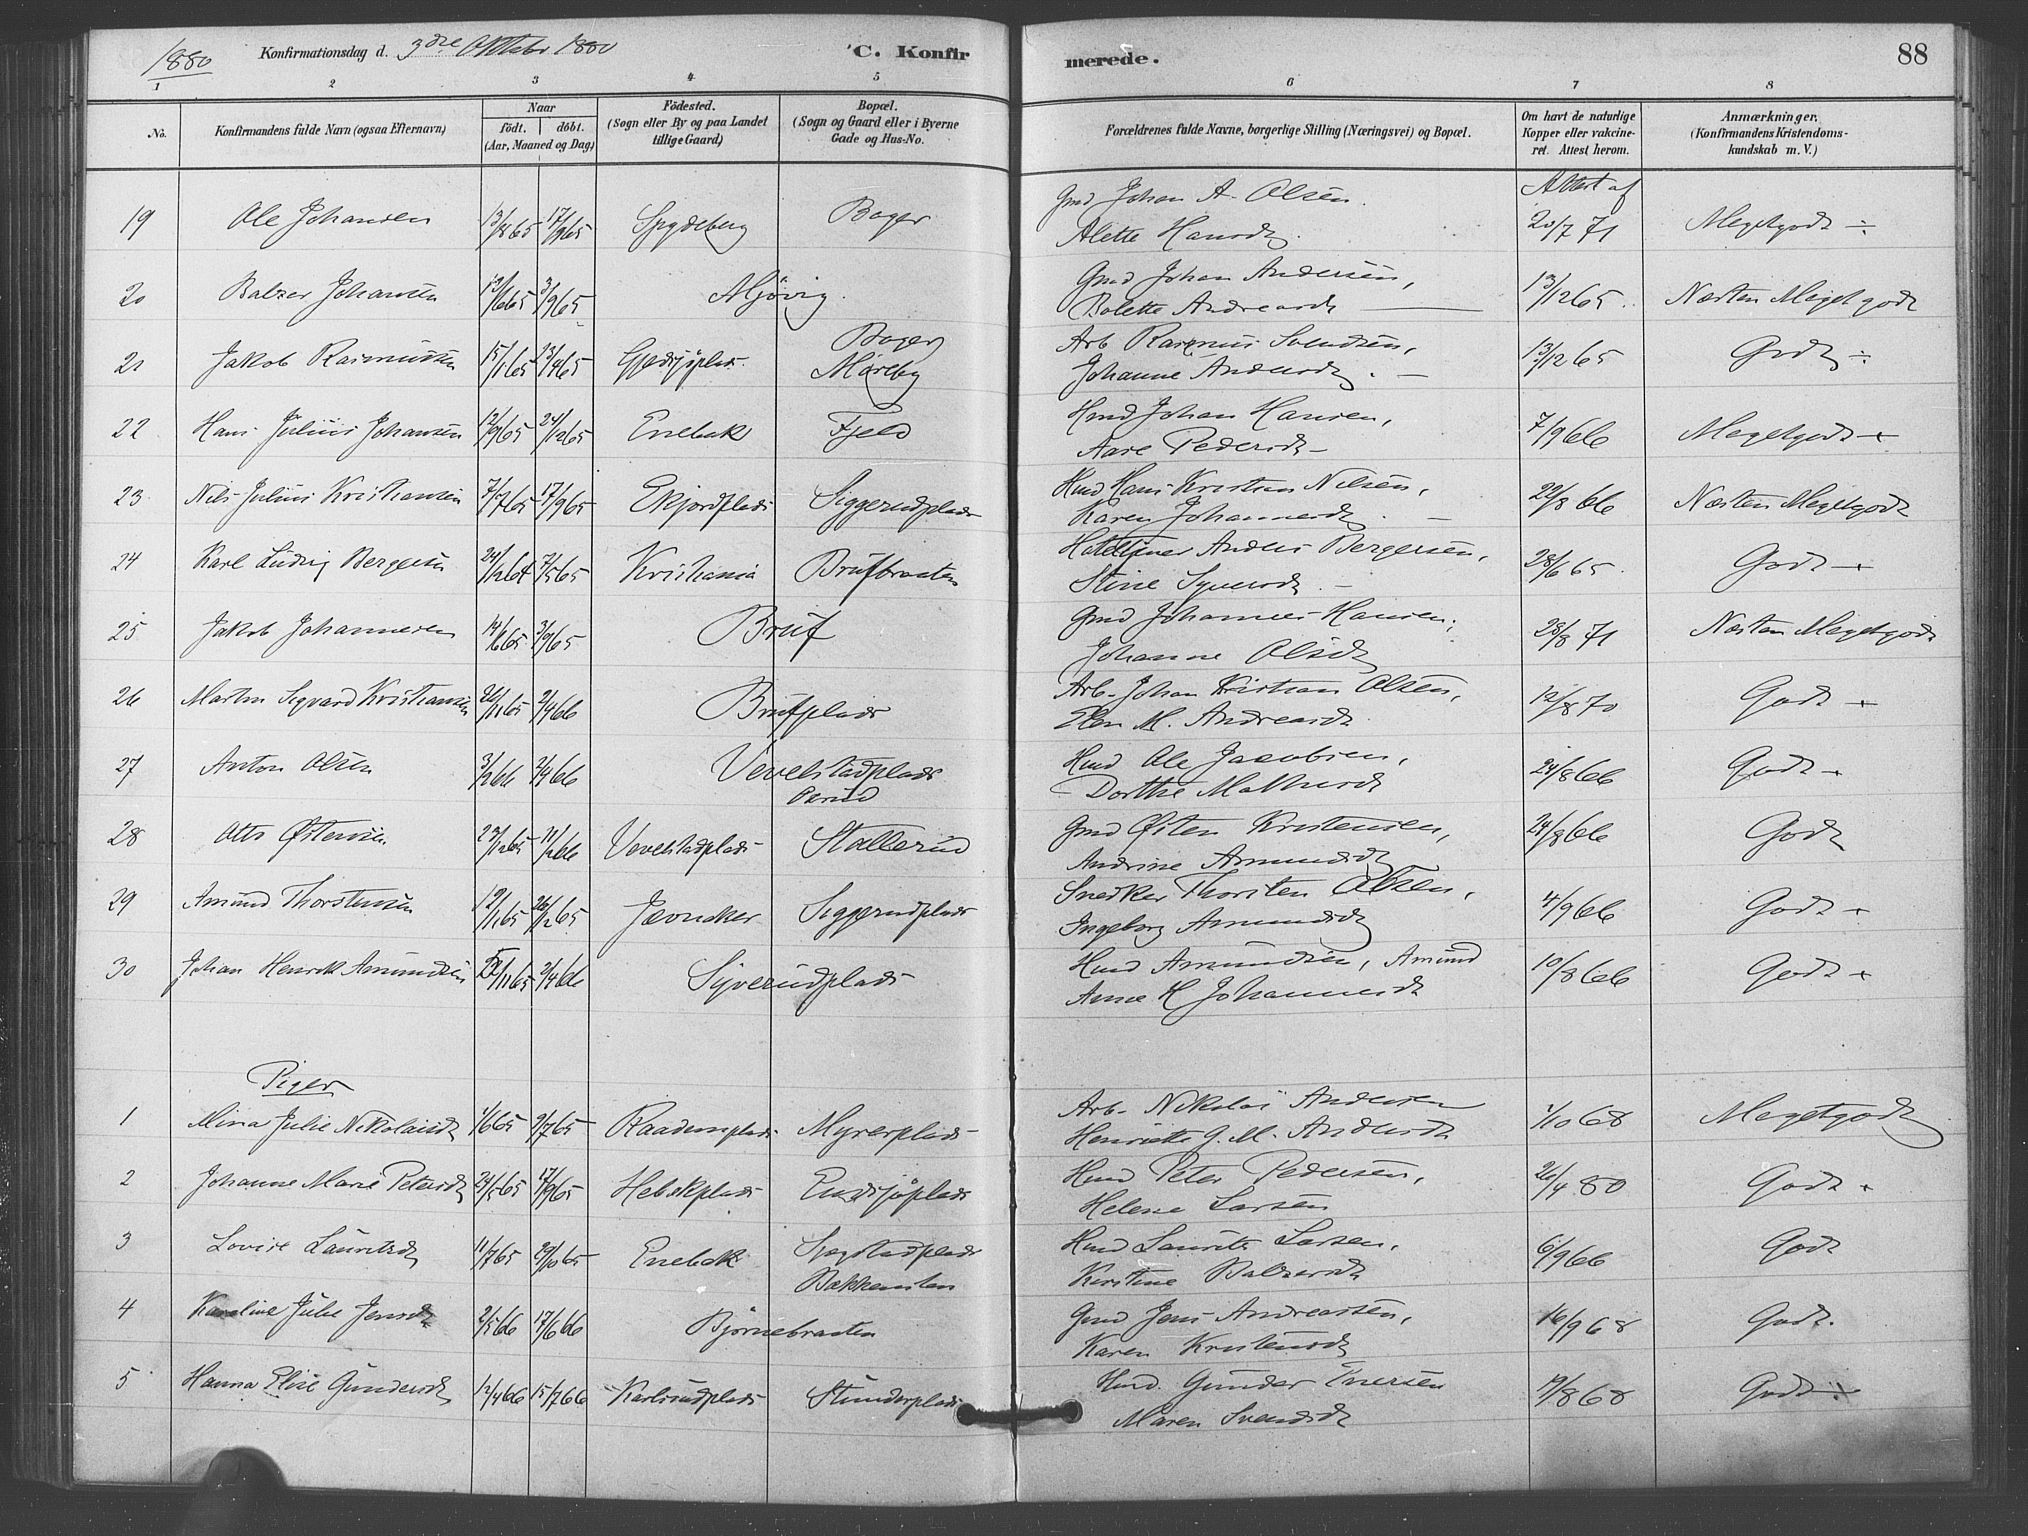 1880 Konfirmationsdag d. 3dre Oktober 1880 C. Konfirmerede. 88
1 2 3 4 5 6 7 8
No. Konfirmandens fulde Navn (ogsaa Efternavn) Naar födt. döbt. (Aar, Maaned og Dag) Födested. (Sogn eller By og paa Landet tillige Gaard) Bopæl. (Sogn og Gaard eller i Byerne Gade og Hus-No. Forældrenes fulde Navne, borgerlige Stilling (Næringsvei) og Bopæl. Om havt de naturlige Kopper eller vakcineret. Attest herom. Anmærkninger. (Konfirmandens Kristendomskundskab m. V.)
19 Ole Johansen 13/8 65 17/9 65 Spydeberg Bøger Gmd Johan A. Olsen. Alette Hansdt. Attest af 20/7 71 Megetgodt ÷
20 Balzer Johansen 13/6 65 3/9 65 Mjøvig. Gmd Johan Andersen, Bolette Andreasdt 13/12 65. Næsten Megetgodt
21 Jakob Rasmussen 15/1 65 23/4 65 Gjedsjøplads. Bøger Møreby Arb Rasmus Svendsen, Johanne Andersdt. 13/12 65 Godt ÷
22 Hans Julius Johansen 12/9 65 24/12 65 Enebak Fjeld Hmd Johan Hansen, Aase Pedersdt 7/9 66 Megetgodt
23 Nils Julius Kristiansen 7/7 65 17/9 65 Ekjordplads Siggerudplads Hmd Hans Kristian Nilsen, Karen Johannesdt. 22/8 66 Næsten Megetgodt
24 Karl Ludvig Bergersen 24/12 64 7/5 65 Kristiania Brufbraaten Anders Bergersen, Stine Syversdt. 28/6 65. Godt
25 Jakob Johannesen 14/6 65 3/9 65 Bruf Gmd Johannes Hansen, Johanne Olsdt 28/8 71 Næsten Megetgodt
26 Martin Sigvard Kristiansen 26/11 65 2/4 66 Brufplads Arb. Johan Kristian Olsen, Elen M. Andreasdt. 12/8 70 Godt
27 Anton Olsen 3/2 66 2/4 66 Vevelstadplads Hmd Ole Jacobsen, Dorthe Mathisdt 24/8 66 Godt
28 Otto Østensen 23/12 65 11/2 66 Vevelstadplads Stallerud Gmd Østen Kristensen, Andrine Amundsdt 24/8 66 Godt
29 Amund Thorstensen 12/11 65 26/12 65 Jævnaker Siggerudplads Snedker Thorsten Olsen, Ingeborg Amundsdt 4/9 66 Godt
30 Johan Henrik Amundsen /11 65 2/4 66 Syverudplads Hmd Amundsen, Amund Anne H Johannesdt 10/8 66 Godt
Piger
1 Mina Julie Nikolaisdt 1/6 65 9/7 65 Raademplads Myrerplads Arb. Nikolai Andersen Henriette G. M. Andersdt 1/10 68 Megetgodt
2 Johanne Marie Petersdt 24/5 65 17/9 65 Hebekplads Endsjøplads Hmd Peter Pedersen, Helene Larsen 26/4 80 Godt
3 Lovise Lauritsdt 11/7 65 29/10 65 Enebak Bakkensten Hmd Laurits Larsen, Kirstine Balzersdt 6/9 66 Godt
4 Karoline Julie Jensdt 2/5 66 17/6 66 Bjørnebraaten Gmd Jens Andreassen, Karen Kristensdt 16/9 68 Godt.
5 Hanna Elise Gundersdt 12/4 66 15/7 66 Karlsrudplads Stunderplads Hmd. Gunder Iversen Maren Svendsdt 9/8 68 Godt